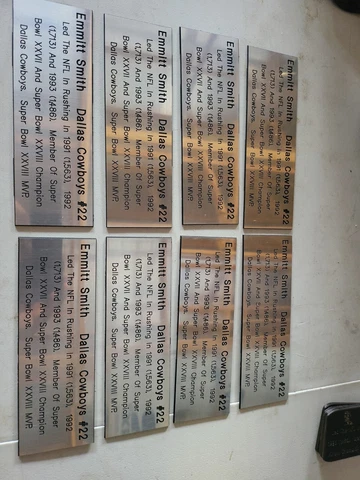 Emmitt Smith Dallas Cowboys #22
Led The NFL In Rushing In 1991 (1,563), 1992
(1,713) And 1993 (1,486). Member Of Super
Bowl XXVII And Super Bowl XXVIII Champion
Dallas Cowboys. Super Bowl XXVIII MVP.
Emmitt Smith Dallas Cowboys #22
Led The NFL In Rushing In 1991 (1,563), 1992
(1,713) And 1993 (1,486). Member Of Super
Bowl XXVII And Super Bowl XXVIII Champion
Dallas Cowboys. Super Bowl XXVIII MVP.
Emmitt Smith Dallas Cowboys #22
Led The NFL In Rushing In 1991 (1,563), 1992
(1,713) And 1993 (1,486). Member Of Super
Bowl XXVII And Super Bowl XXVIII Champion
Dallas Cowboys. Super Bowl XXVIII MVP.
Emmitt Smith Dallas Cowboys #22
Led The NFL In Rushing In 1991 (1,563), 1992
(1,713) And 1993 (1,486). Member Of Super
Bowl XXVII And Super Bowl XXVIII Champion
Dallas Cowboys. Super Bowl XXVIII MVP.
Emmitt Smith Dallas Cowboys #22
Led The NFL In Rushing In 1991 (1,563), 1992
(1,713) And 1993 (1,486). Member Of Super
Bowl XXVII And Super Bowl XXVIII Champion
Dallas Cowboys. Super Bowl XXVIII MVP.
Emmitt Smith Dallas Cowboys #22
Led The NFL In Rushing In 1991 (1,563), 1992
(1,713) And 1993 (1,486). Member Of Super
Bowl XXVII And Super Bowl XXVIII Champion
Dallas Cowboys. Super Bowl XXVIII MVP.
Emmitt Smith Dallas Cowboys #22
Led The NFL In Rushing In 1991 (1,563), 1992
(1,713) And 1993 (1,486). Member Of Super
Bowl XXVII And Super Bowl XXVIII Champion
Dallas Cowboys. Super Bowl XXVIII MVP.
Emmitt Smith Dallas Cowboys #22
Led The NFL In Rushing In 1991 (1,563), 1992
(1,713) And 1993 (1,486). Member Of Super
Bowl XXVII And Super Bowl XXVIII Champion
Dallas Cowboys. Super Bowl XXVIII MVP.